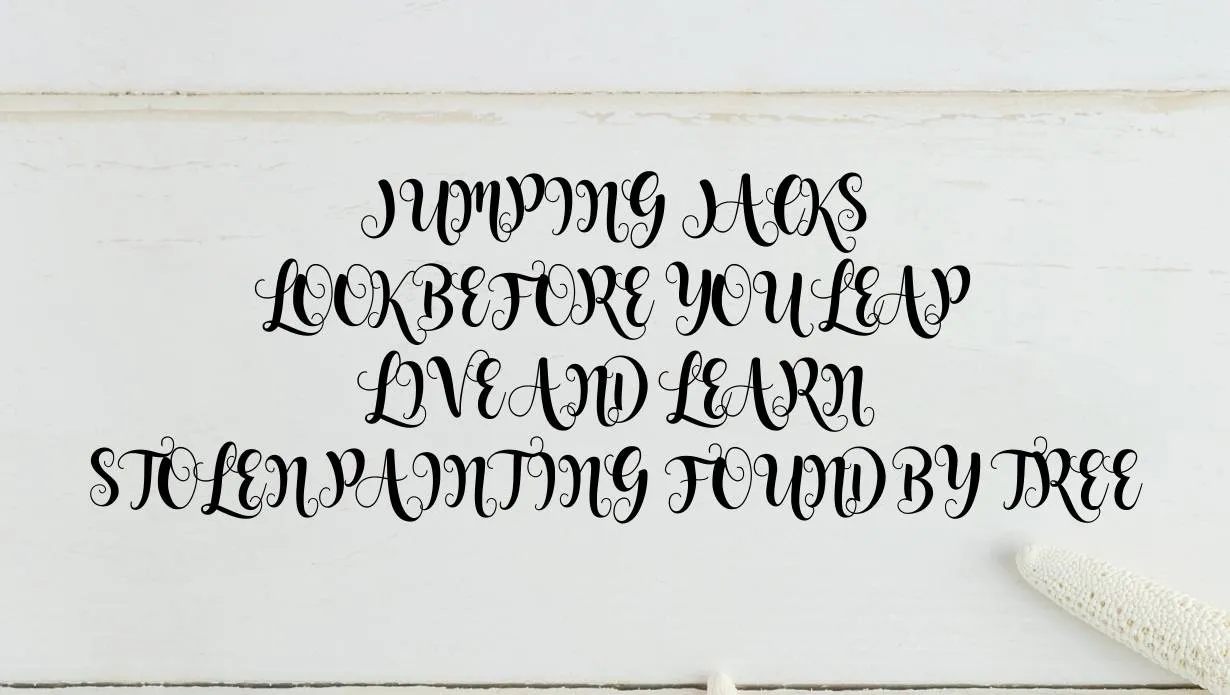 JUMPING JACKS
LOOK BEFORE YOU LEAP
LIVE AND LEARN
STOLEN PAINTING FOUND BY TREE